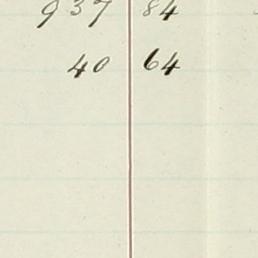 937 84
40 64